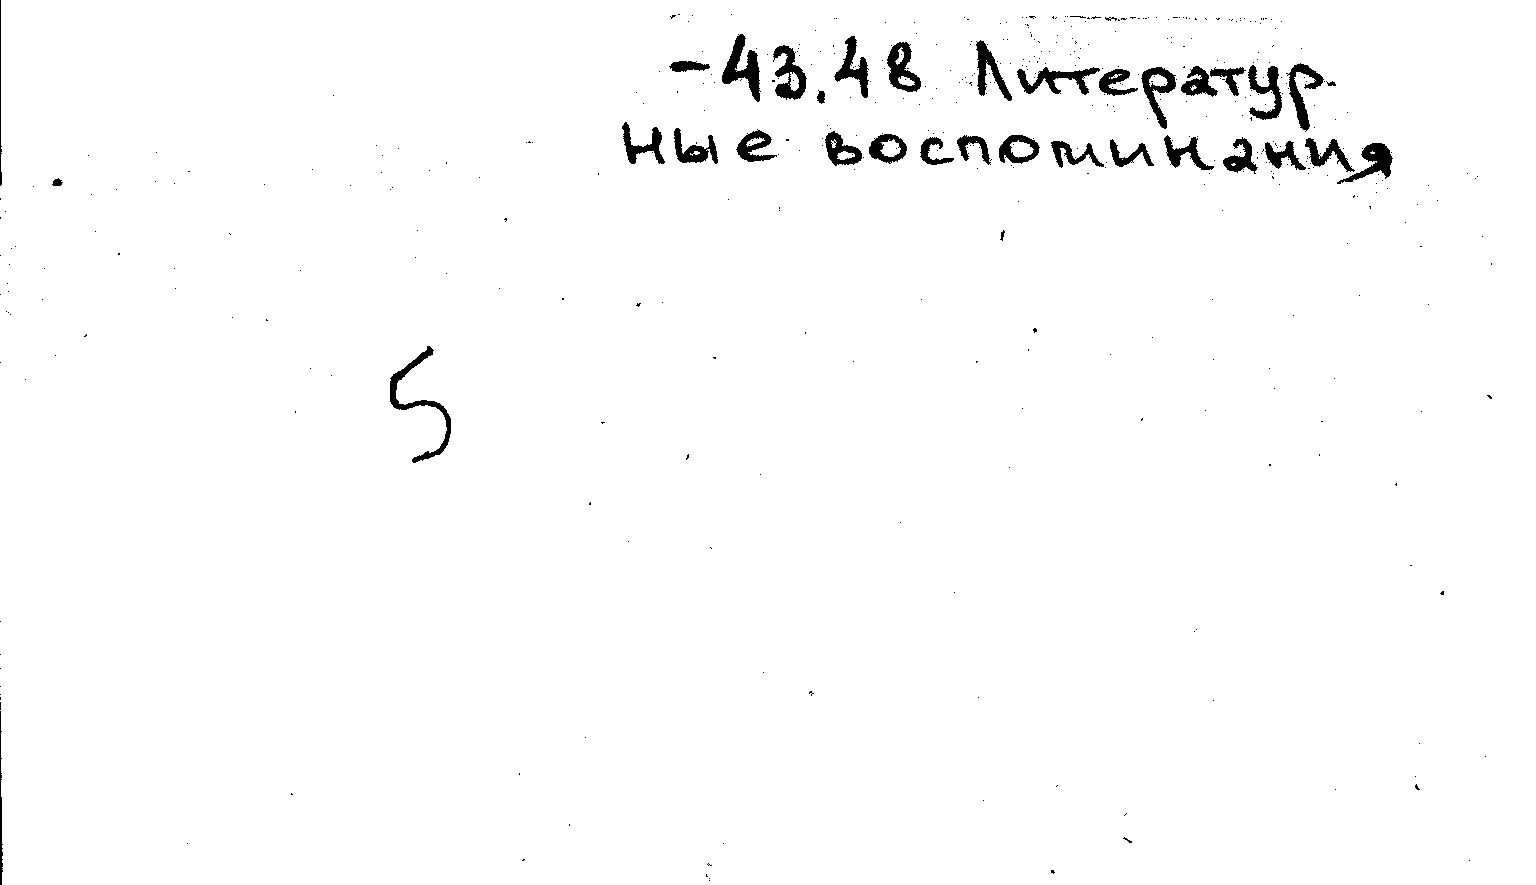 -43.48 Литератур-
ные воспоминания
5